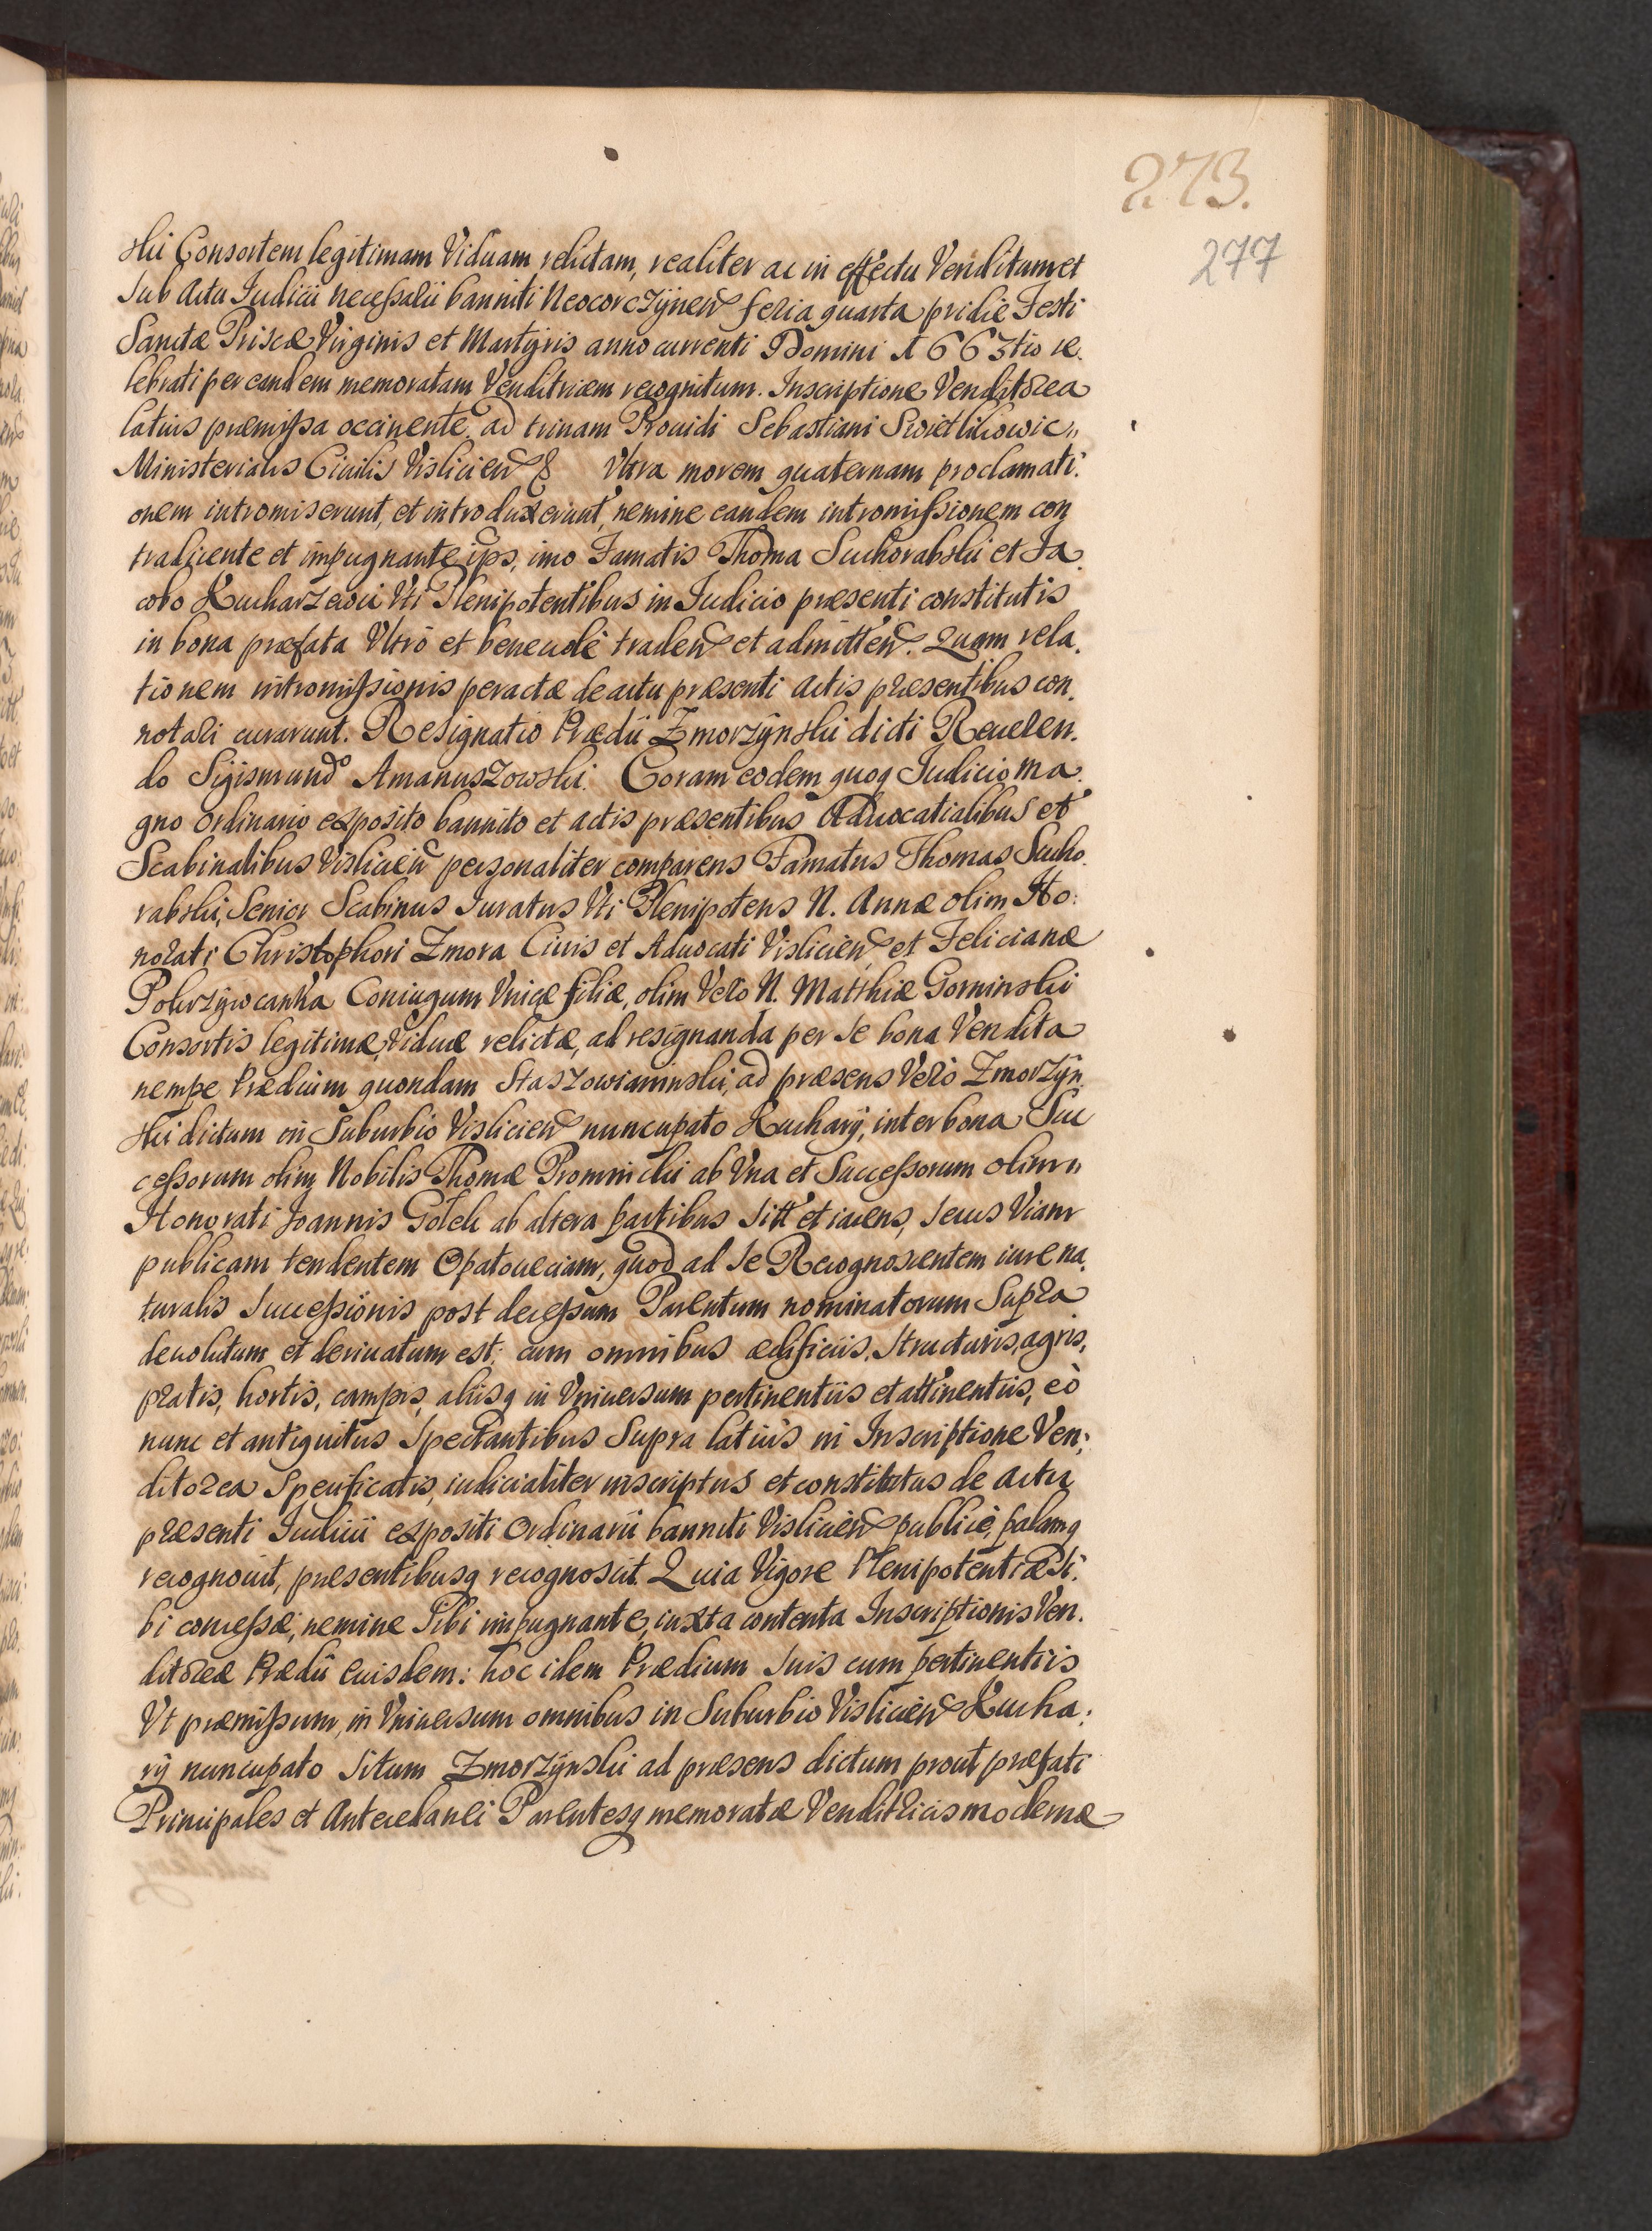 273.
277
ski Consortem legitimam Viduam relictam, realiter ac in effectu Venditum et
sub Actu Judicii necessarii banniti Neocorczÿnen feria quarta pridie Festi
Sanctæ Priscæ Virginis et Martÿris anno currenti Domini 1663tio ce.
lebrati per eandem memoratam Venditricem recognitum. Inscriptione Venditorea
latius præmissa occinente, ad trinam Prouidi Sebastiani Swietlikowic,,
Ministerialis Ciuilis Vislicien & Vltra morem quaternam proclamati:
onem intromiserunt, et introduxerunt, nemine eandem intromissionem con
tradicente et impugnante, ips, imo Famatis Thoma Suchorabski et Ja.
cobo Kucharzewic Vti Plenipotentibus in Judicio præsenti constitutis
in bona præfata Vltrò et beneuolè traden et admitten. Quam rela.
tionem intromissionis peractæ de actu præsenti actis præsentibus con.
notari curarunt. Resignatio Prædii Zmorzÿnski dicti Reueren.
do Sigismundo Amanuszowski. Coram eodem quoq Judicio ma.
gno ordinario exposito bannito et actis præsentibus Aduocatialibus et
Scabinalibus Vislicien personaliter comparens Famatus Thomas Sucho.
rabski, Senior Scabinus Iuratus Vti Plenipotens N. Annæ olim Ho:
norati Christophori Zmora Ciuis et Aduocati Vislicien et Felicianæ
Pokrzÿwcanka Coniugum Vnicæ filiæ, olim Vero N. Matthiæ Gorninski
Consortis legitimæ, Viduæ relictæ, ad resignanda per se bona Vendita
nempe Prædium quondam Staszowianinski, ad præsens Verò Zmorzÿn
ski dictum in Suburbio Vislicien nuncupato Kucharÿ, inter bona Suc
cessorum olim Nobilis Thomæ Promnicki ab Vna et Successorum olim,,
Honorati Joannis Gołek ab altera partibus sitt et iacens, secus Viam
publicam tendentem Opatoueciam, quod ad se Recognoscentem iure na.
turalis successionis post decessum Parentum nominatorum Supra
deuolutum et deriuatum est: cum omnibus ædificiis, structuris, agris,
pratis, hortis, campis, aliisq in Vniuersum pertinentiis et attinentiis, eò
nunc et antiquitus spectantibus Supra latius in Inscriptione Ven:
ditorea Specificatis, iudicialiter inscriptus et constitutus de actu
præsenti Judicii expositi Ordinarii banniti Vislicien publicè, palamq
recognouit, præsentibusq recognoscit. Quia Vigore Plenipotentiæ Si:
bi concessæ, nemine Sibi impugnante, iuxta contenta Inscriptionis Ven.
ditoreæ Prædii eiusdem: hoc idem Prædium suis cum pertinentiis
Vt præmissum, in Vniuersum omnibus in Suburbio Vislicien Kucha:
rÿ nuncupato situm Zmorzÿnski ad præsens dictum prout præfati
Principales et Antecedanei Parentesq memoratæ Venditricis modernæ